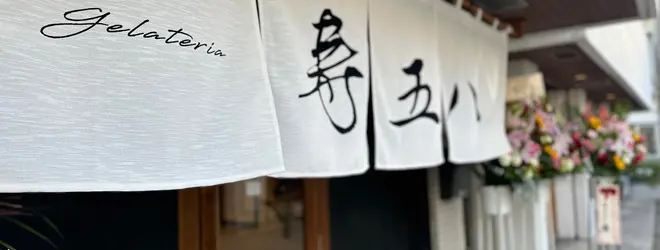 Gelateria
寿五八